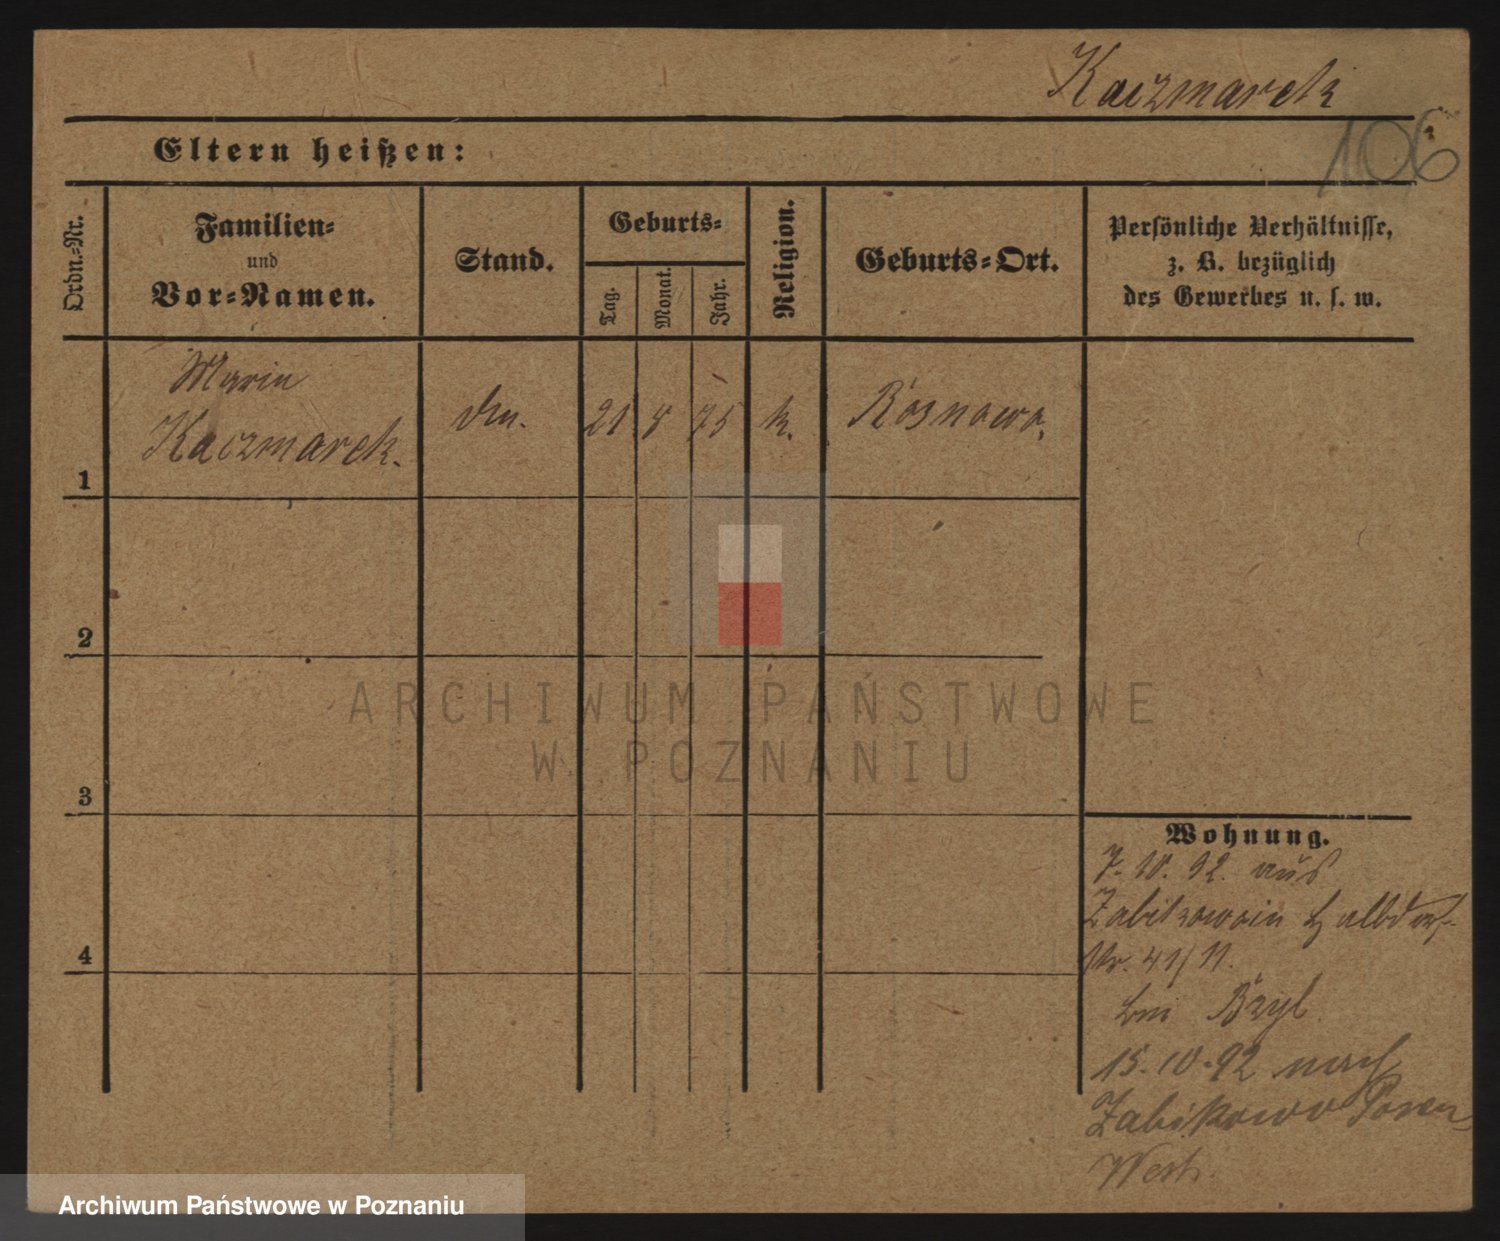 Kaczmarek
106
Eltern heißen:
Ordn.-Nr.
Familien-
und
Vor-Namen.
Stand.
Geburts-
Tag.
Monat.
Jahr.
Religion.
Geburts-Ort.
Persönliche Verhältnisse,
z. B. bezüglich
des Gewerbes u. s. w.
Marie
Kaczmarek.
21 8 75 k.
Rosnowo.
1
2
3
4
ARCHIWUM PAŃSTWOWE
W POZNANIU
Wohnung.
7. 10. 92. aus
Halbdorf-
Nr. 41/
bei Bzyl
15.10.92 nach
Zabikowo Posen-
West.
Archiwum Państwowe w Poznaniu